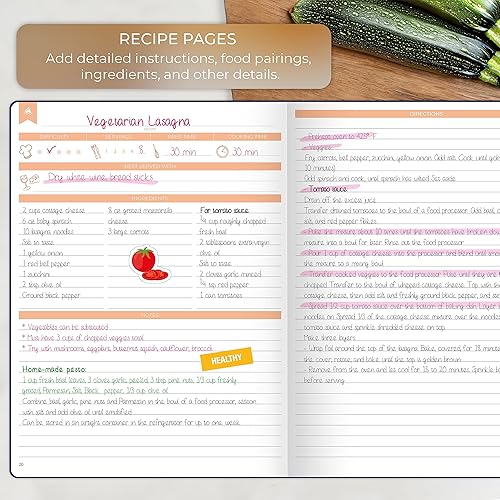 RECIPE PAGES
Add detailed instructions, food pairings,
ingredients, and other details.
Vegetarian Lasagna
RECIPE
DIFFICULTY
SERVINGS
PREP TIME
COOKING TIME
8
30 min
30 min
BEST SERVED WITH
Dry white wine, bread sticks
INGREDIENTS
2 cups cottage cheese
6 oz baby spinach
10 lasagna noodles
Salt to taste
1 yellow onion
1 red bell pepper
1 zucchini
2 tbsp olive oil
Ground black pepper
8 oz grated mozzarella
cheese
3 large carrots
For tomato sauce:
1/4 cup roughly chopped
fresh basil
2 tablespoons extra-virgin
olive oil
Salt to taste
2 cloves garlic minced
1/4 tsp red pepper
1 can tomatoes
NOTES
* Vegetables can be substituted
* Must have 3 cups of chopped veggies total
* Try with mushrooms, eggplant, butternut squash, cauliflower, broccoli
HEALTHY
Home-made pesto:
1 cup fresh basil leaves, 3 cloves garlic, peeled 3 tbsp pine nuts, 1/3 cup freshly
grated Parmesan, Salt, Black pepper, 1/3 cup olive oil
Combine basil, garlic, pine nuts and Parmesan in the bowl of a food processor, season
with salt and add olive oil until emulsified
Can be stored in an airtight container in the refrigerator for up to one week
20
DIRECTIONS
- Preheat oven to 425° F
- Veggies:
Fry carrots, bell pepper, zucchini, yellow onion. Add salt. Cook until
10 minutes)
Add spinach and cook, until spinach has wilted. Set aside.
- Tomato sauce:
Drain off the excess juice
Transfer drained tomatoes to the bowl of a food processor. Add basil,
salt, and red pepper flakes.
- Pulse the mixture about 10 times until the tomatoes have broken
mixture into a bowl for later. Rinse out the food processor
- Pour 1 cup of cottage cheese into the processor and blend until
the mixture to a mixing bowl
- Transfer cooked veggies to the food processor. Pulse until they are
chopped. Transfer to the bowl of whipped cottage cheese. Top with the
cottage cheese, then add salt and freshly ground black pepper, and
- Spread 1/2 cup tomato sauce over the bottom of baking dish. Layer
noodles on. Spread 1/3 of the cottage cheese mixture over the noodles
tomato sauce and sprinkle shredded cheese on top
Make three layers
- Wrap foil around the top of the lasagna. Bake, covered, for 18 minutes
the cover, rotate, and bake until the top is golden brown
- Remove from the oven and let cool for 15 to 20 minutes. Sprinkle
before serving.